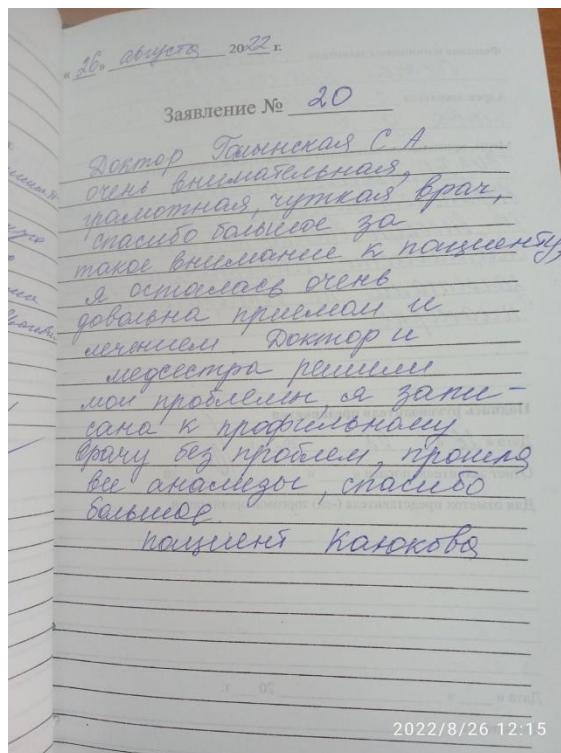 « 26 » августа 2022 г.
Заявление № 20
Доктор Голынская С.А.
очень внимательная,
грамотная, чуткая врач,
спасибо большое за
такое внимание к пациенту,
я осталась очень
довольна приемом и
лечением. Доктор и
медсестра решили
мои проблемы, я запи-
сана к профильному
врачу без проблем, прошла
все анализы, спасибо
большое.
пациент Каюкова
2022/8/26 12:15